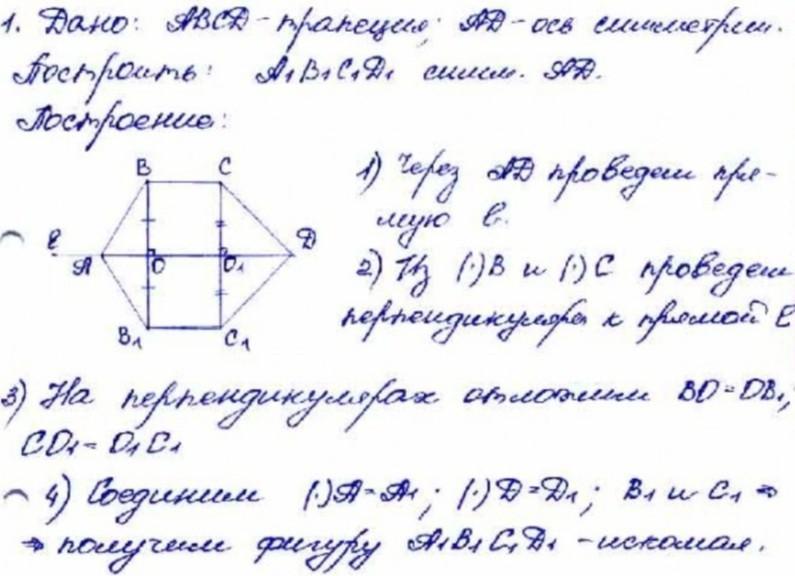 1. Дано: ABCD - трапеция; AD - ось симметрии.
Построить: A1B1C1D1 симм. AD.
Построение:
B C
ℓ A O O1 D
B1 C1
1) Через AD проведем пря-
мую ℓ.
2) Из (·)B и (·)C проведем
перпендикуляры к прямой ℓ
3) На перпендикулярах отложим BO=OB1;
CO1=O1C1
4) Соединим (·)A=A1; (·)D=D1; B1 и C1 ⇒
⇒ получим фигуру A1B1C1D1 - искомая.